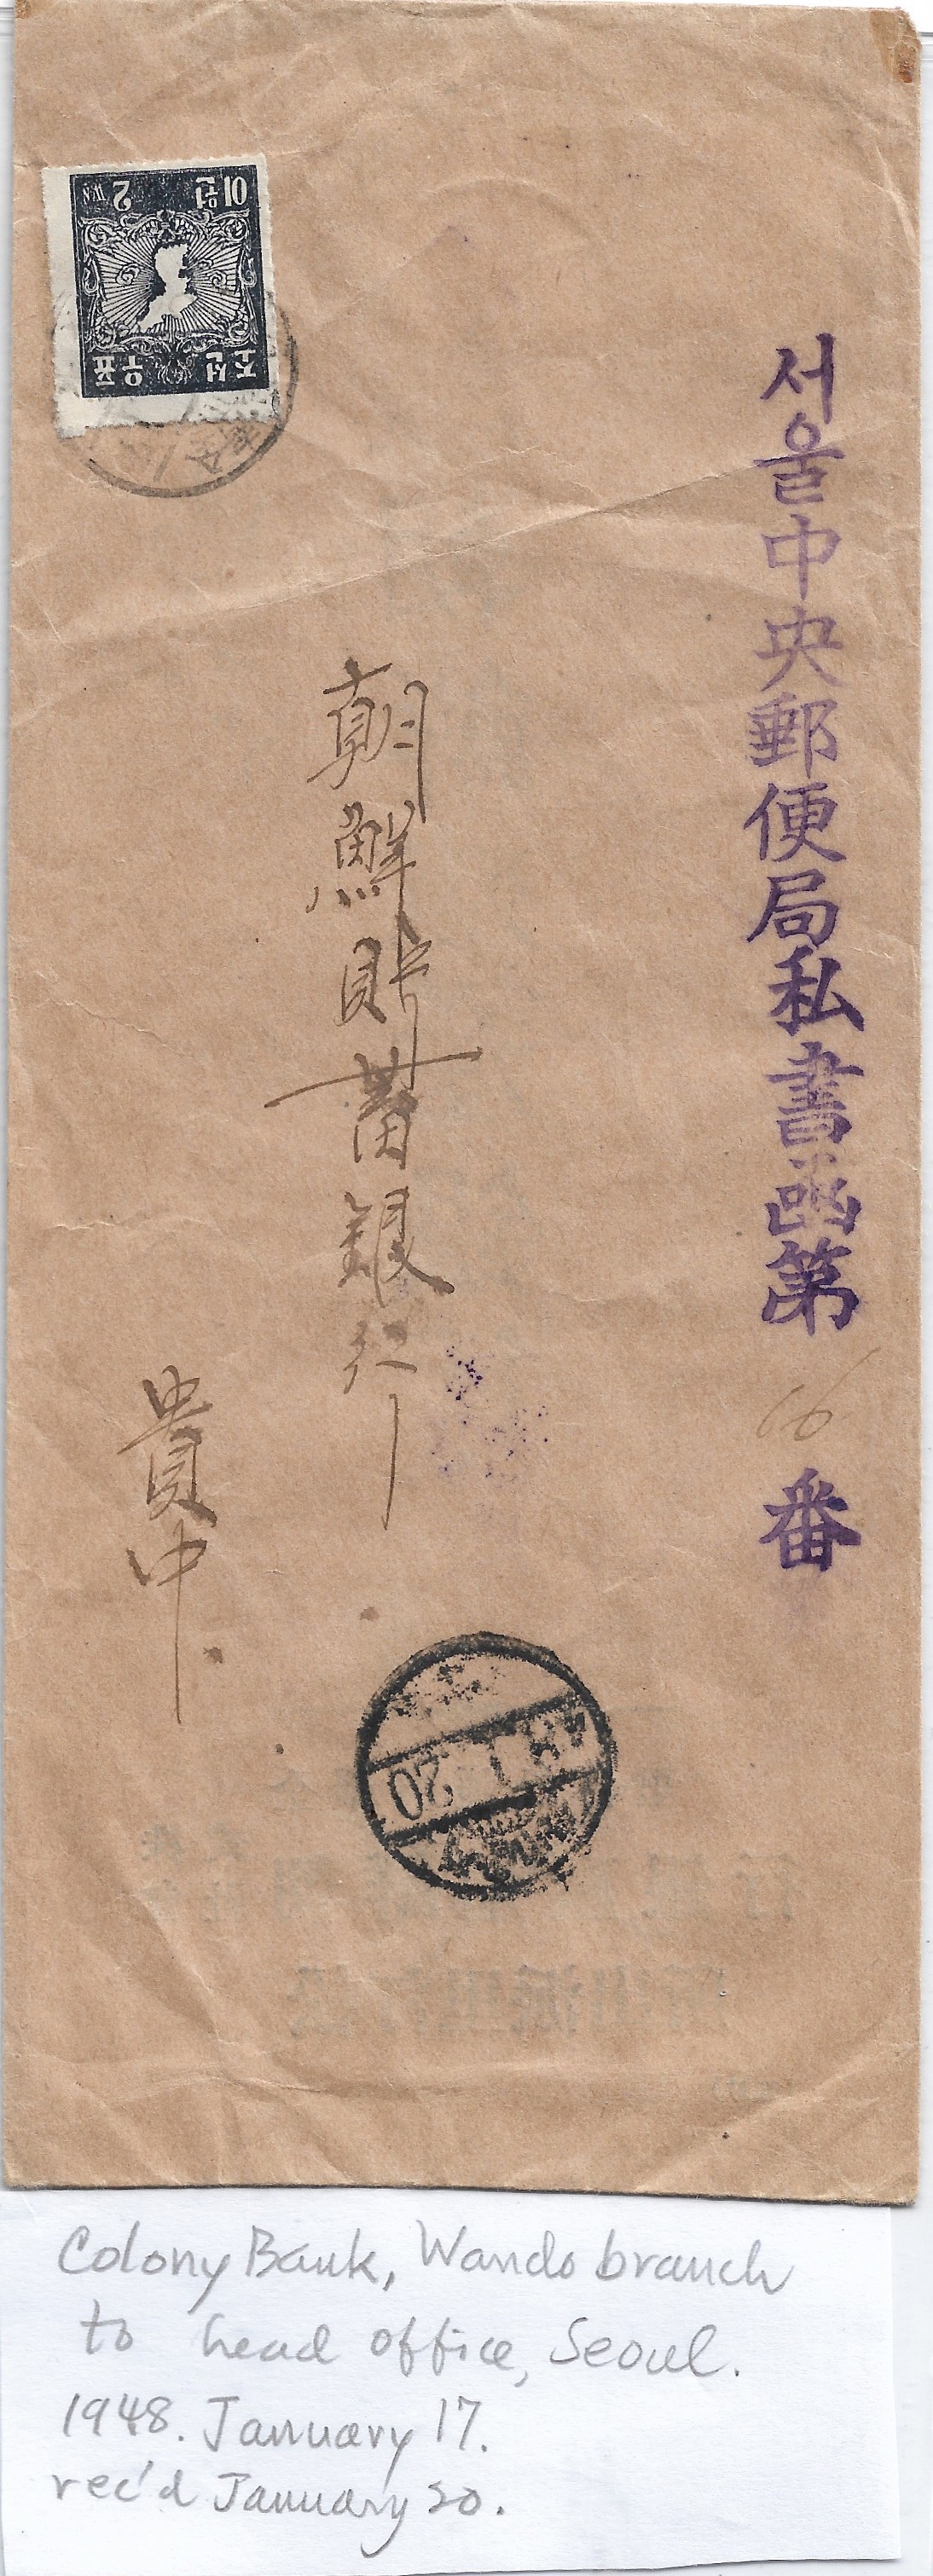 이원 2 WN
조선 우표
서울中央郵便局私書函第 66 番
朝鮮貯蓄銀行
貴中
48. 1. 20
Colony Bank, Wando branch
to head office, Seoul.
1948. January 17.
rec'd January 20.